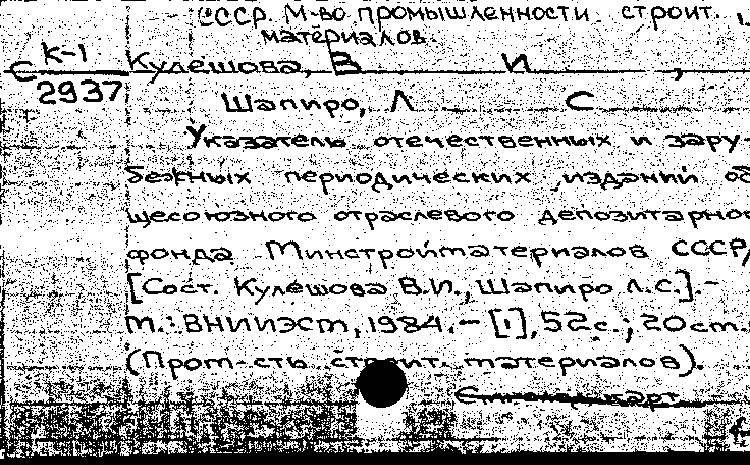 СССР. М-во промышленности строит.
материалов.
К-1
С 2937
Кулешова, В И ,
Шапиро, Л С
Указатель отечественных и зару-
бежных периодических изданий об
щесоюзного отраслевого депозитарног
фонда Минстройматериалов СССР/
[Сост. Кулешова В.И., Шапиро Л.С.].-
М.: ВНИИЭСМ, 1984.- [1], 52с.; 20см.
(Пром-сть строит. материалов).